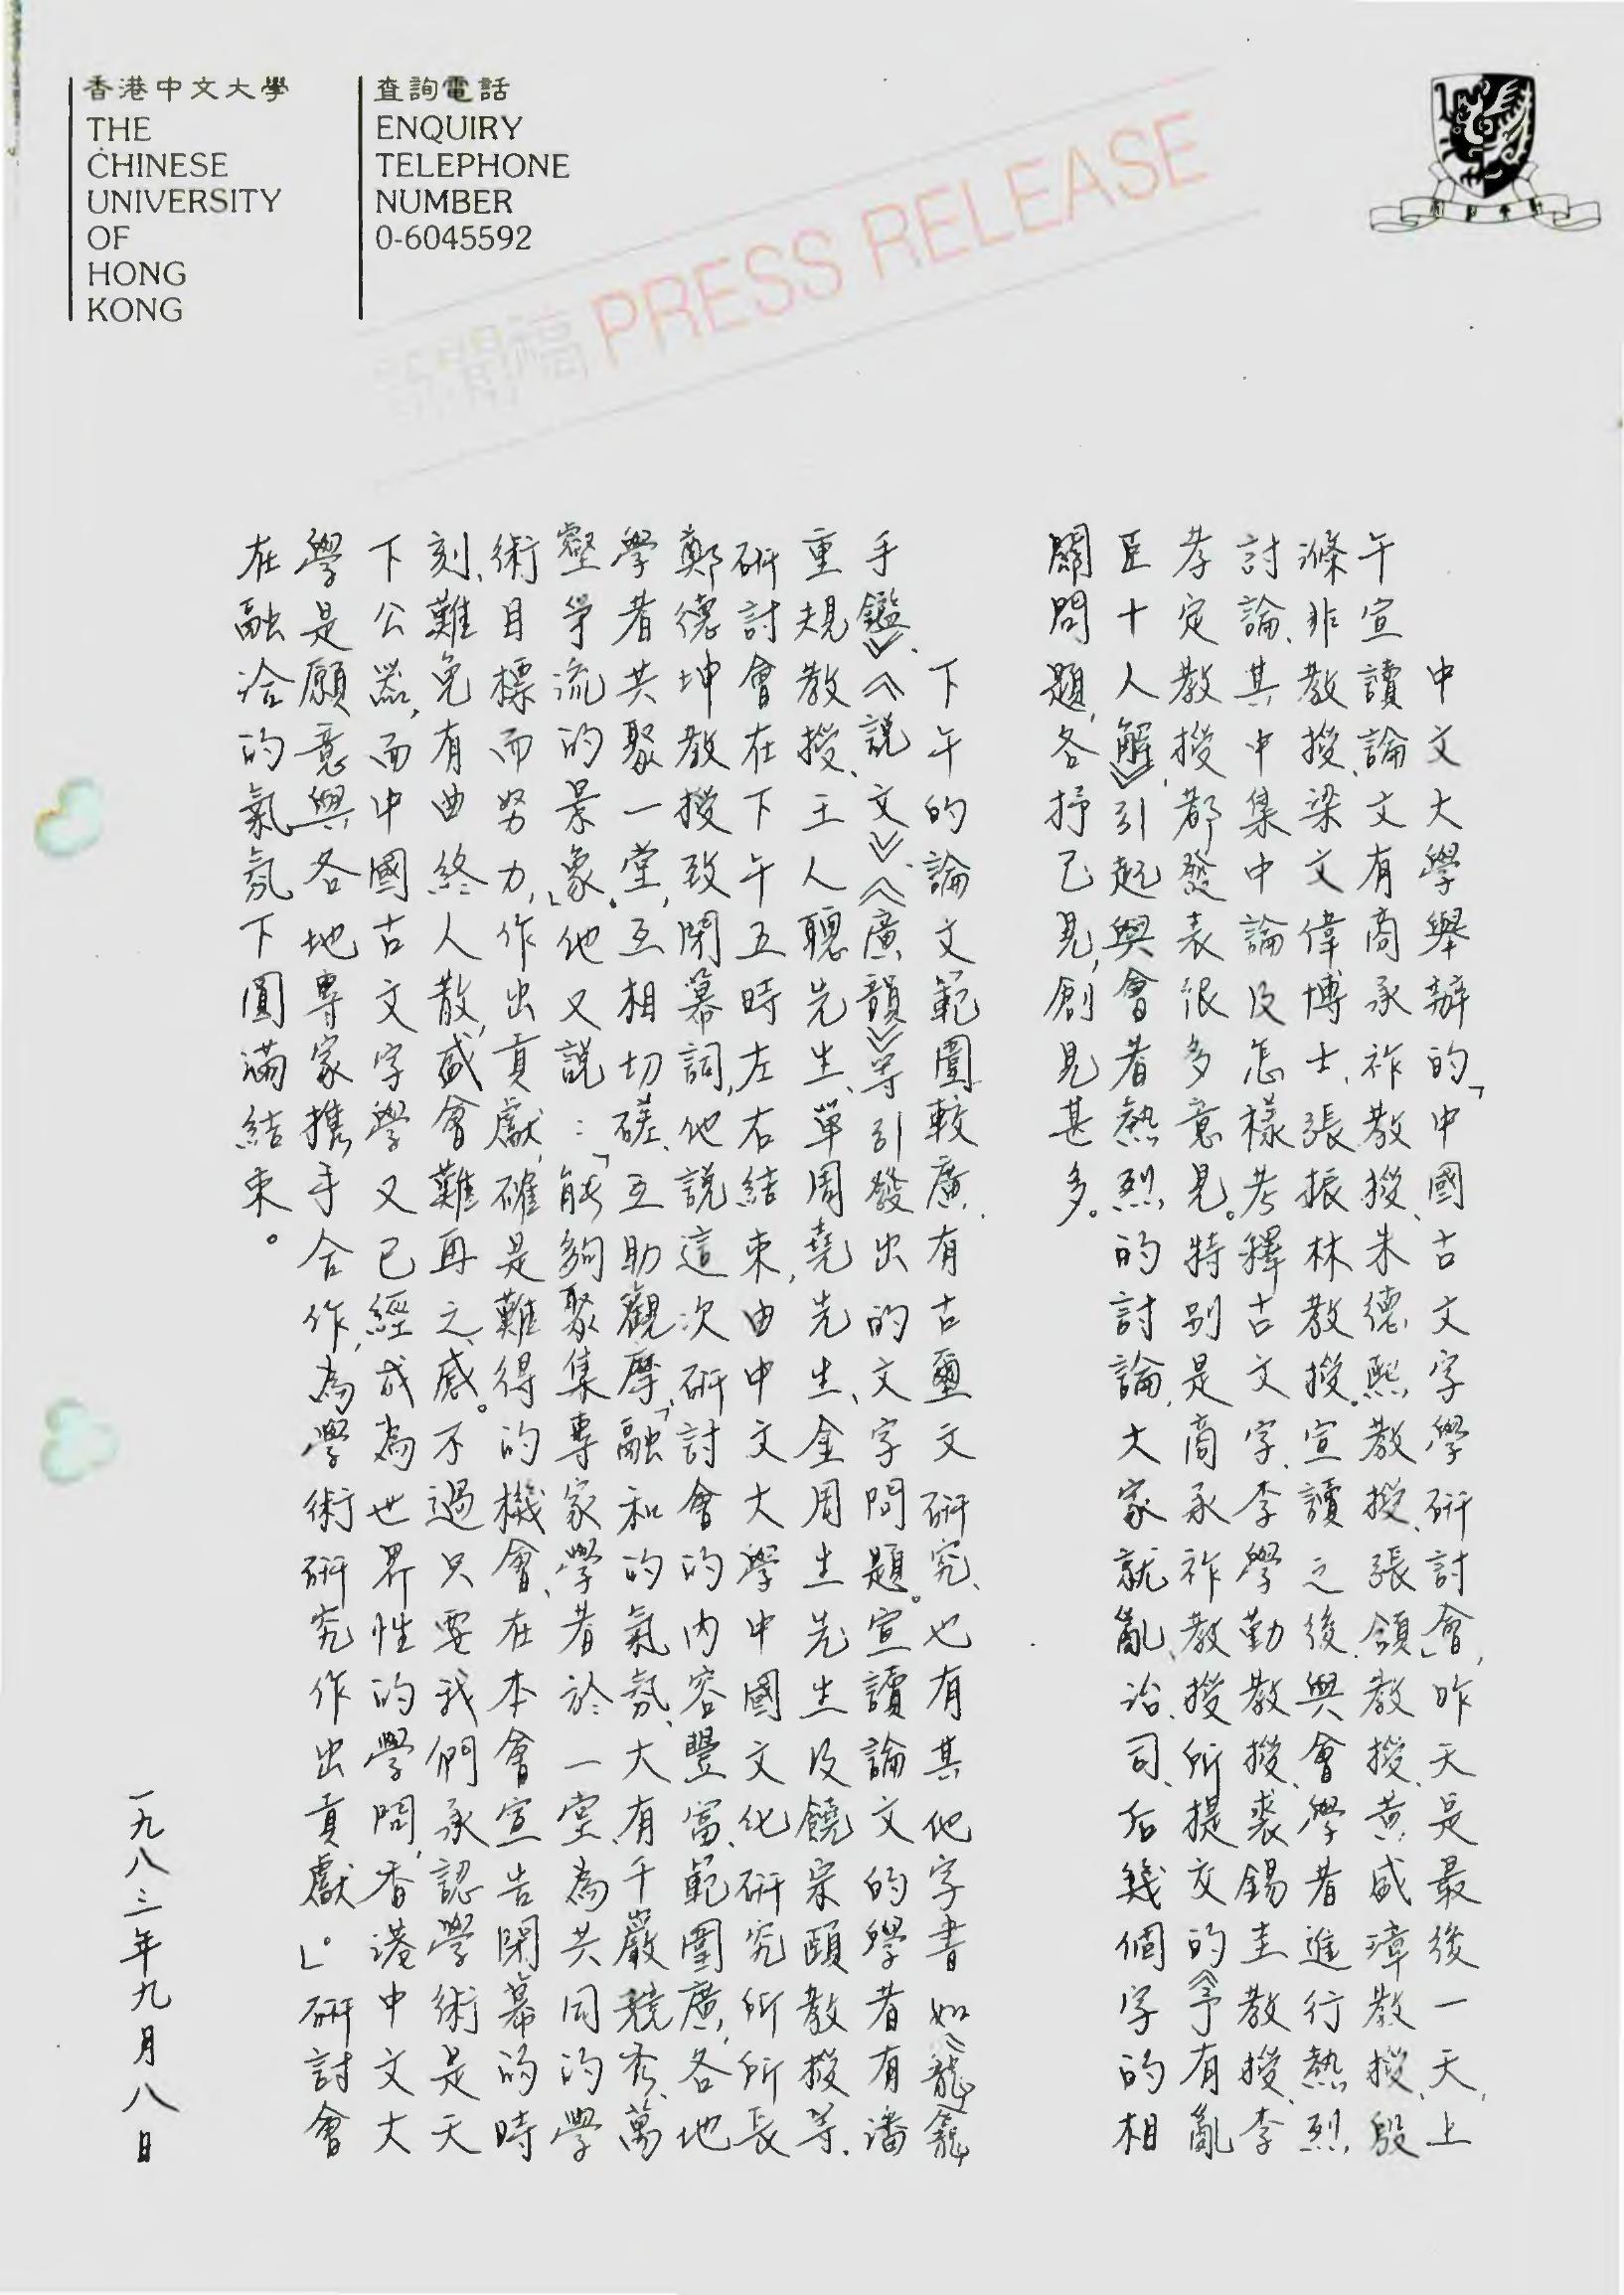 香港中文大學
THE
CHINESE
UNIVERSITY
OF
HONG
KONG
查詢電話
ENQUIRY
TELEPHONE
NUMBER
0-6045592
新聞稿 PRESS RELEASE
中文大學舉辦的「中國古文字學研討會」,昨天是最後一天,上
午宣讀論文有商承祚教授、朱德熙教授、張頷教授、黃盛璋教授、殷
滌非教授、梁文偉博士、張振林教授。宣讀之後,與會學者進行熱烈
討論、其中集中論及怎樣考釋古文字、李學勤教授、裘錫圭教授、李
孝定教授、都發表很多意見。特別是商承祚教授、所提交的《予有亂
臣十人解》,引起與會者熱烈的討論,大家就亂、治、司、后幾個字的相
關問題,各抒己見,創見甚多。
下午的論文範圍較廣,有古璽文研究、也有其他字書如《龍龕
手鑑》、《說文》、《廣韻》等引發出的文字問題。宣讀論文的學者有潘
重規教授、王人聰先生、單周堯先生、金周生先生及饒宗頤教授等、
研討會在下午五時左右結束,由中文大學中國文化研究所所長
鄭德坤教授致閉幕詞,他說這次研討會的內容豐富、範圍廣,各地
學者共聚一堂,互相切磋、互助觀摩,「融和的氣氛、大有千巖競秀、萬
壑爭流的景象」。他又說:「能夠聚集專家學者於一堂、為共同的學
術目標而努力,作出貢獻,確是難得的機會、在本會宣告閉幕的時
刻、難免有曲終人散,盛會難再之感。不過只要我們承認學術是天
下公器,而中國古文字學又已經成為世界性的學問,香港中文大
學是願意與各地專家攜手合作,為學術研究作出貢獻。」研討會
在融洽的氣氛下圓滿結束。
一九八三年九月八日